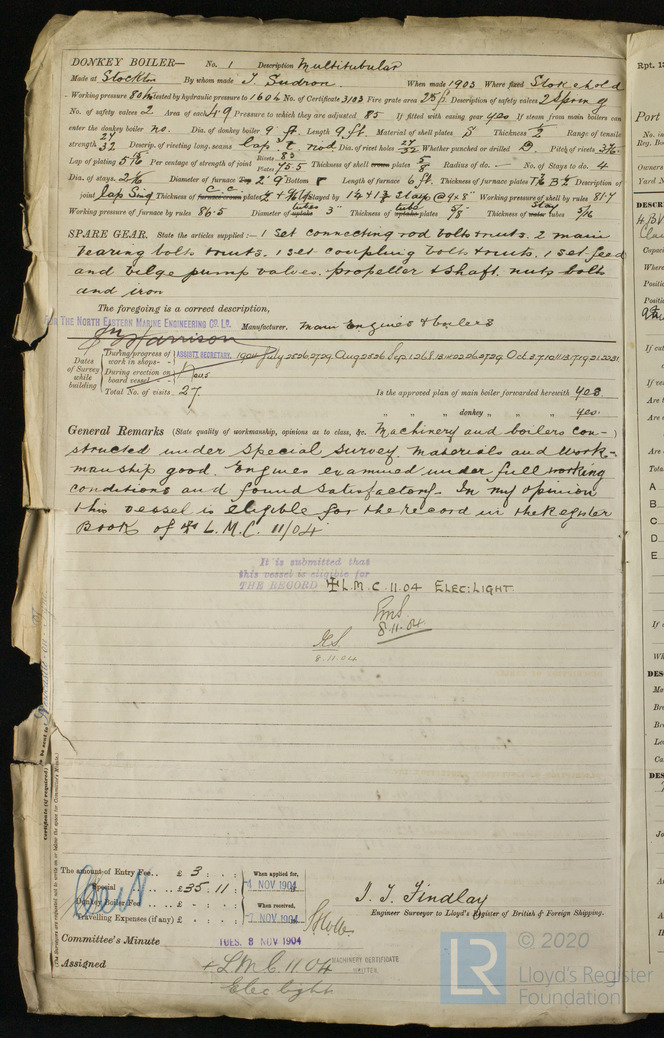 DONKEY BOILER— No. 1 Description Multitubular
Made at Stockton By whom made T. Sudron. When made 1903 Where fixed Stokehold
Working pressure 80 lb tested by hydraulic pressure to 160 lb No. of Certificate 3103 Fire grate area 25 Description of safety valves 2 Spring
No. of safety valves 2 Area of each 4.9 Pressure to which they are adjusted 85 If fitted with easing gear yes If steam from main boilers can
enter the donkey boiler no. Dia. of donkey boiler 9 ft. Length 9 ft. Material of shell plates S Thickness 1/2 Range of tensile
strength 27/32 Descrip. of riveting long. seams lap Dia. of rivet holes 27/32 Whether punched or drilled D. Pitch of rivets
Lap of plating Per centage of strength of joint Rivets 83 Plates 75.5 Thickness of shell crown plates 5/8 Radius of do. — No. of Stays to do. 4
Dia. of stays. Diameter of furnace Top 2' 9" Bottom Length of furnace 6 ft. Thickness of furnace plates Description of
joint lap Sing Thickness of furnace crown plates Stayed by Stay @ 9 x 8" Working pressure of shell by rules 81.7
Working pressure of furnace by rules 86.5 Diameter of uptake tubes 3" Thickness of uptake tube plates Thickness of water stay tubes 3/16
SPARE GEAR. State the articles supplied :— 1 set connecting rod bolts & nuts. 2 main
bearing bolts & nuts. 1 set coupling bolts & nuts. 1 set feed
and bilge pump valves. propeller & shaft. nuts bolts
and iron
The foregoing is a correct description,
FOR THE NORTH EASTERN MARINE ENGINEERING CO. LD. Manufacturer. Main Engines & boilers
J Harrison
ASSISTT SECRETARY.
Dates of Survey while building
During progress of work in shops - - 1904 July 25 26 27 29 Aug 25 26 Sep 1 2 6 8 13 14 22 26 27 29 Oct 3 7 10 11 13 17 19 21 22 31
During erection on board vessel - - - 1 Nov 5
Total No. of visits 27. Is the approved plan of main boiler forwarded herewith yes
" " " donkey " " " yes.
General Remarks (State quality of workmanship, opinions as to class, &c. Machinery and boilers con-
structed under special survey. materials and work-
manship good. Engines examined under full working
conditions and found satisfactory. In my opinion
this vessel is eligible for the record in the Register
Book of ✠ L.M.C. 11/04
It is submitted that
this vessel is eligible for
THE RECORD ✠ L.M.C. 11.04 ELEC: LIGHT
8.11.04
8.11.04
Certificate (if required) to be sent to
(The Surveyors are requested not to write on or below the space for Committee's Minute.)
The amount of Entry Fee . . £ 3 : :
Special . . . . £ 35 . 11 :
Donkey Boiler Fee . . £ - : :
Travelling Expenses (if any) £ - : :
When applied for,
4 NOV 1904
When received,
7 NOV 1904
T. T. Findlay
Engineer Surveyor to Lloyd's Register of British & Foreign Shipping.
Committee's Minute TUES. 8 NOV 1904
Assigned + L.M.C. 11.04
Elec light
MACHINERY CERTIFICATE
WRITTEN
LR © 2020
Lloyd's Register
Foundation
Rpt. 13
Port
No. in
Reg. Boo
Owners
Yard
DESCRI
Capac
Where
Positio
Positio
If cut
If ve
Are
Are
Tota
A
B
C
D
E
If
Wh
DESC
Ma
Bra
Bra
Lea
Ca
DES
Jo
Are
Are
Ho
Are